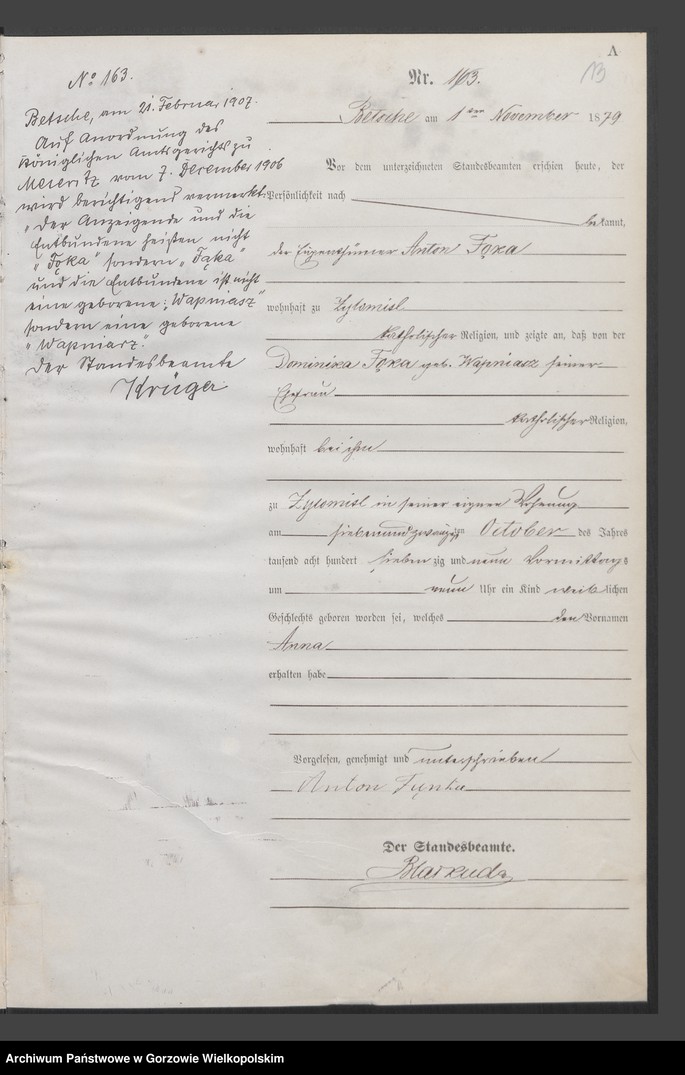 A
13
Nr. 163.
Betsche am 1ten November 1879
Vor dem unterzeichneten Standesbeamten erschien heute, der
Persönlichkeit nach
bekannt,
der Eigenthümer Anton Foka
wohnhaft zu Zylomisl
katholischer Religion, und zeigte an, daß von der
Dominika Foka geb. Wapniasz seiner
Ehefrau
katholischer Religion,
wohnhaft bei ihm
zu Zylomisl in seiner eignen Wohnung
am siebenundzwanzigsten October des Jahres
tausend acht hundert siebenzig und neun Vormittags
um neun Uhr ein Kind weiblichen
Geschlechts geboren worden sei, welches den Vornamen
Anna
erhalten habe
Vorgelesen, genehmigt und unterschrieben
Anton
Der Standesbeamte.
No 163.
Betsche, am 21. Februar 1907.
Auf Anordnung des
Königlichen Amtsgerichts zu
Meseritz vom 7. December 1906
wird berichtigend vermerkt:
"Der Anzeigende und die
Entbundene heißen nicht
"Foka" sondern "Fąka"
und die Entbundene ist nicht
eine geborene: "Wapniasz"
sondern eine geborene
"Wapniarz".
Der Standesbeamte
Krüger
Archiwum Państwowe w Gorzowie Wielkopolskim